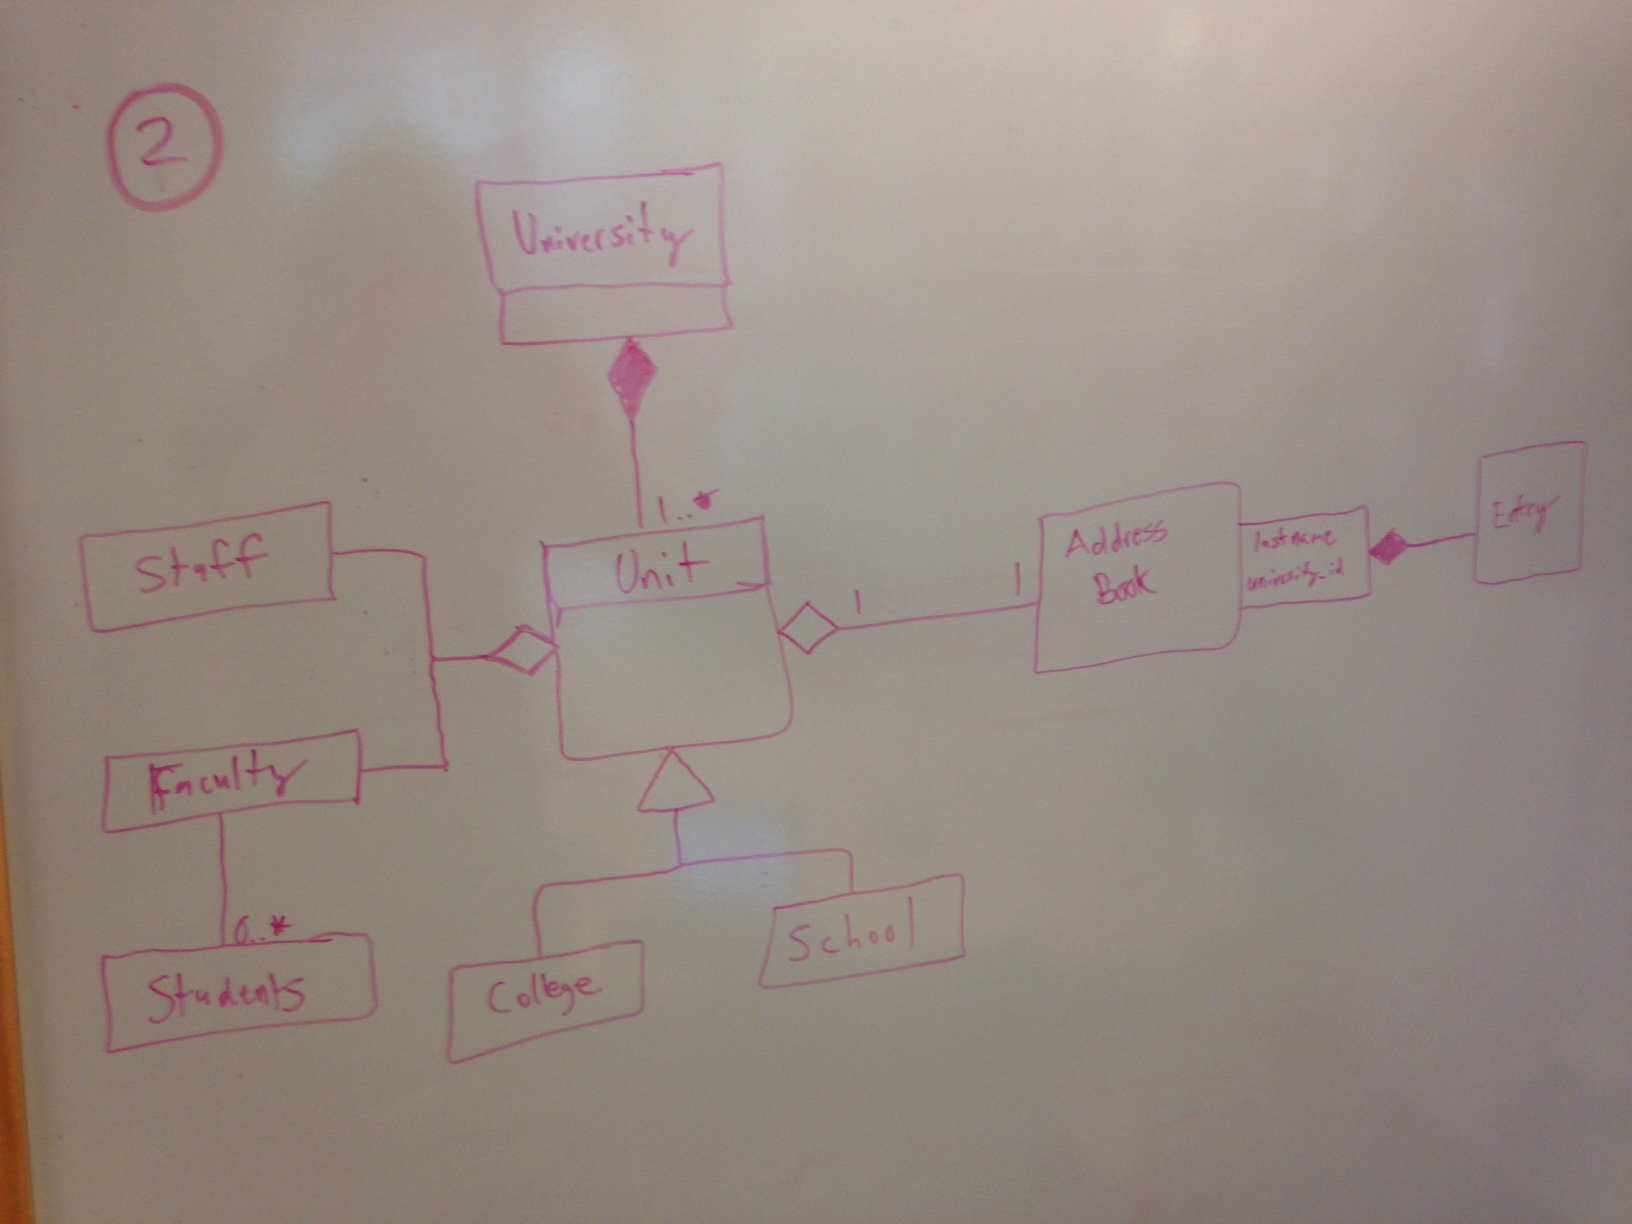 2
University
1..*
Unit
Staff
1
1
Address
Book
lastname
university_id
Entry
Faculty
0..*
Students
College
School